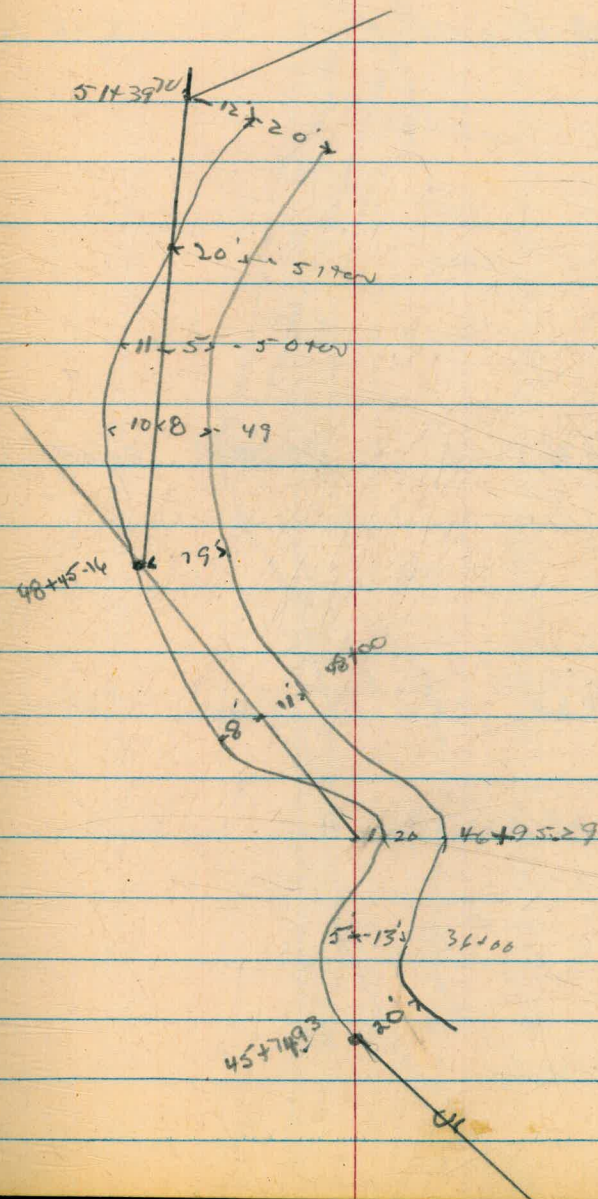 51+39⁷⁰
12' 20'
20' 51+00
11 5 50+00
10 8 49
48+45.16
19⁵
48+00
8' 11'
1 20 46+95.29
5' 13' 36+00
20'
45+74⁹³